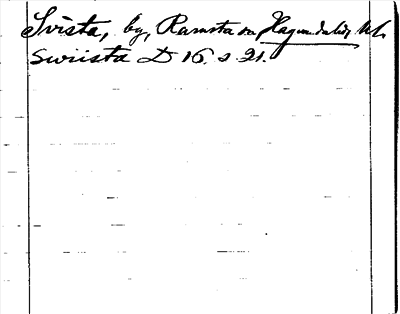 Svista, by, Ramsta sn, Hagunda hd, Upl.
Swiista D 16. s. 21.